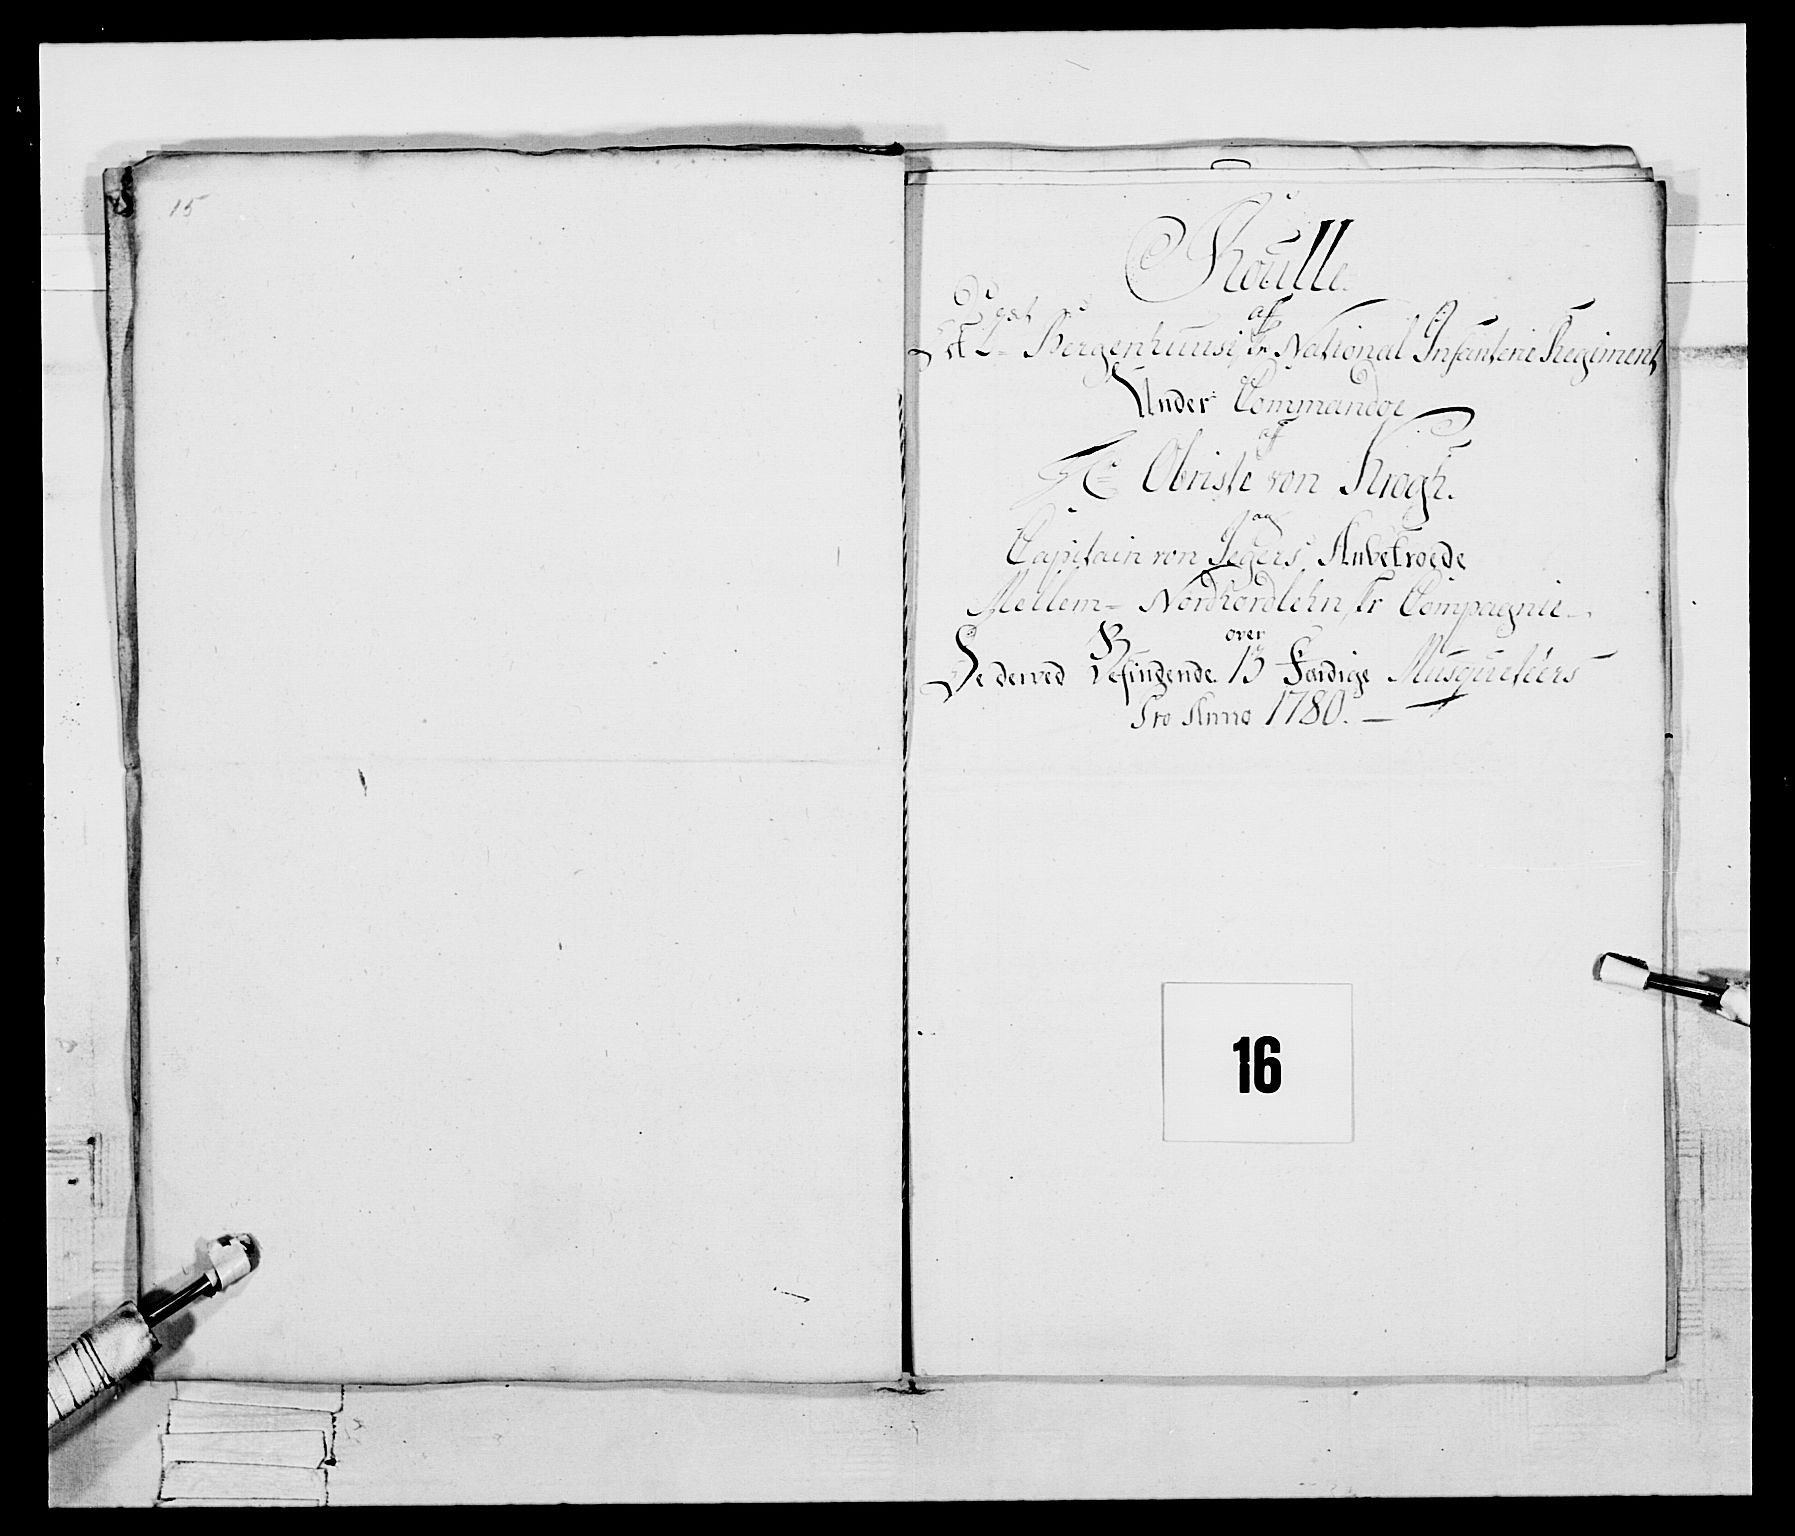 15
Roulle
af
Det 2det Bergenhuusiske National Infanterie Regiment
Under Commandoe
af
Hr Obriste von Krogh.
og
Capitain von Segers, Anbetroede
Mellem- Nordhordlehnske Compagnie
over
De derved Befindende 13 Færdige Musqueteers
Pro Anno 1780.
16